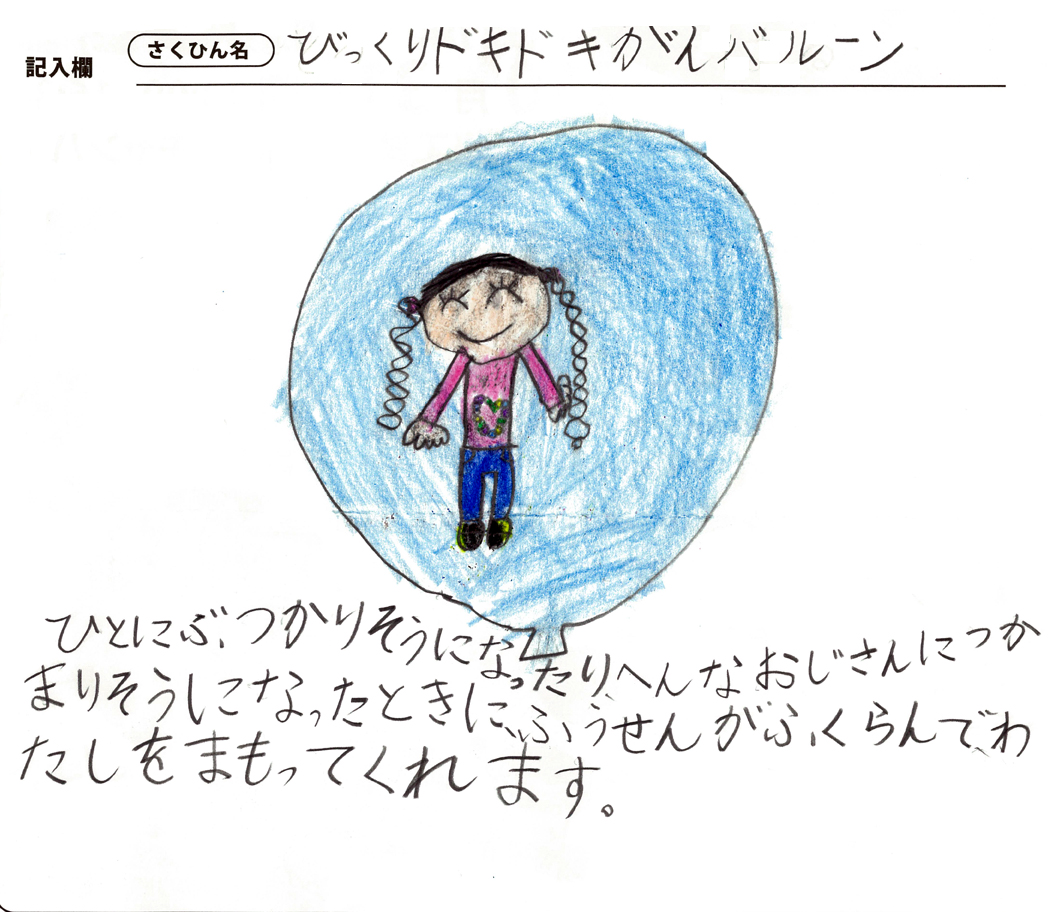 記入欄 さくひん名 びっくりドキドキがんバルーン
ひとにぶつかりそうになったりへんなおじさんにつか
まりそうになったときに、ふうせんがふくらんでわ
たしをまもってくれます。